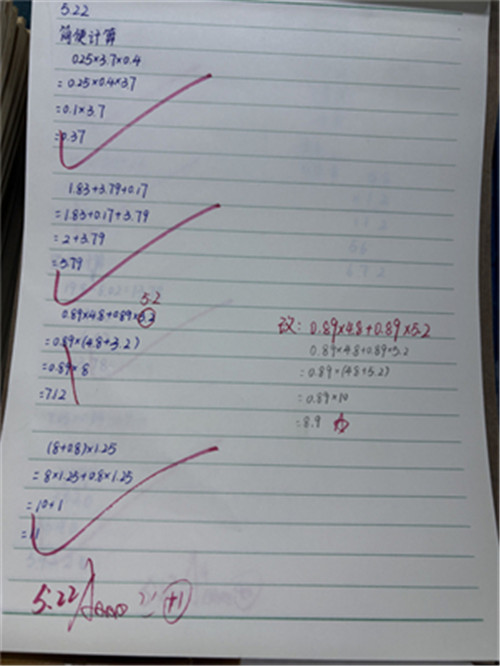 5.22
简便计算
0.25×3.7×0.4
=0.25×0.4×3.7
=0.1×3.7
=0.37
1.83+3.79+0.17
=1.83+0.17+3.79
=2+3.79
=5.79
5.2
0.89×4.8+0.89×3.2
=0.89×(4.8+3.2)
=0.89×8
=7.12
改: 0.89×4.8+0.89×5.2
0.89×4.8+0.89×5.2
=0.89×(4.8+5.2)
=0.89×10
=8.9
(8+0.8)×1.25
=8×1.25+0.8×1.25
=10+1
=11
5.22
+1